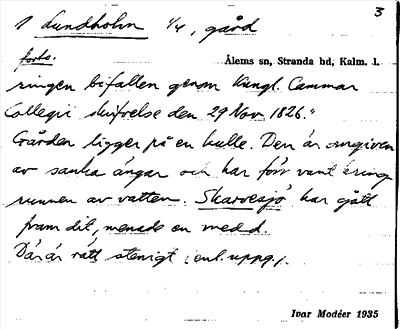 1 Lundholm 1/4, gård
3
forts.
Ålems sn, Stranda hd, Kalm. l.
ringen bifallen genom Kungl. Cammar
Collegii skrifvelse den 29 Nov. 1826."
Gården ligger på en kulle. Den är omgiven
av sanka ängar och har förr varit kring-
runnen av vatten. Skarvesjö har gått
fram dit, menade en medd.
Där är rätt stenigt, enl. uppg.
Ivar Modéer 1935